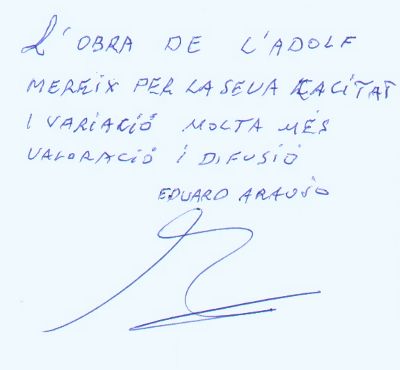 L'OBRA DE L'ADOLF
MEREIX PER LA SEVA CACITAT
I VARIACIÓ MOLTA MÉS
VALORACIÓ I DIFUSIÓ
EDUARD ARAUJO